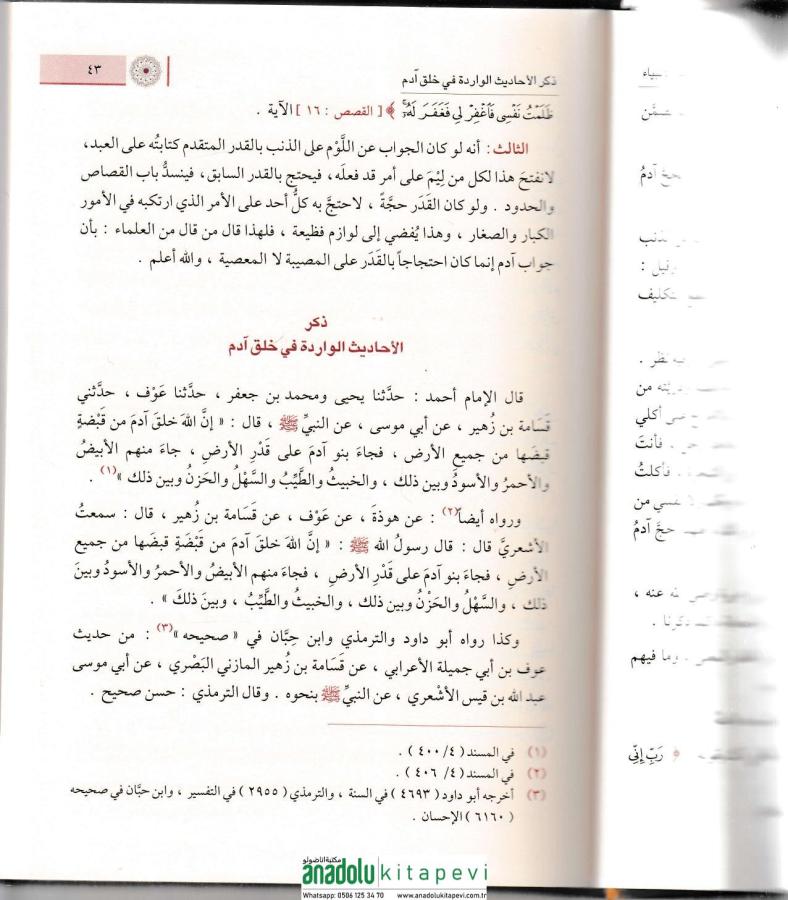 ذكر الأحاديث الواردة في خلق آدم
٤٣
ظَلَمْتُ نَفْسِي فَاغْفِرْ لِي فَغَفَرَ لَهُ ﴾ [ القصص : ١٦ ] الآية .
الثالث : أنه لو كان الجواب عن اللَّوْم على الذنب بالقدر المتقدم كتابتُه على العبد،
لانفتحَ هذا لكل من لِيْمَ على أمر قد فعلَه، فيحتج بالقدر السابق، فينسدُّ باب القصاص
والحدود . ولو كان القَدَر حجَّةً ، لاحتجَّ به كلُّ أحد على الأمر الذي ارتكبه في الأمور
الكبار والصغار ، وهذا يُفضي إلى لوازم فظيعة ، فلهذا قال من قال من العلماء : بأن
جواب آدم إنما كان احتجاجاً بالقَدَر على المصيبة لا المعصية ، والله أعلم .
ذكر
الأحاديث الواردة في خلق آدم
قال الإمام أحمد : حدَّثنا يحيى ومحمد بن جعفر ، حدَّثنا عَوْف ، حدَّثني
قَسَامة بن زُهير ، عن أبي موسى ، عن النبيِّ ﷺ ، قال : « إنَّ اللهَ خلقَ آدمَ من قَبْضةٍ
قبضَها من جميع الأرض ، فجاءَ بنو آدمَ على قَدْرِ الأرضِ ، جاءَ منهم الأبيضُ
والأحمرُ والأسودُ وبين ذلك ، والخبيثُ والطَّيِّبُ والسَّهْلُ والحَزنُ وبين ذلك »(١) .
ورواه أيضاً(٢) : عن هوذةَ ، عن عَوْف ، عن قَسَامة بن زُهير ، قال : سمعتُ
الأشعريَّ قال : قال رسولُ الله ﷺ : « إنَّ اللهَ خلقَ آدمَ من قَبْضَةٍ قبضَها من جميع
الأرضِ ، فجاءَ بنو آدمَ على قَدْرِ الأرضِ ، فجاءَ منهم الأبيضُ والأحمرُ والأسودُ وبينَ
ذلك ، والسَّهْلُ والحَزْنُ وبين ذلك ، والخبيثُ والطَّيِّبُ ، وبينَ ذلكَ » .
وكذا رواه أبو داود والترمذي وابن حِبَّان في « صحيحه »(٣) : من حديث
عوف بن أبي جميلة الأعرابي ، عن قَسَامة بن زُهير المازني البَصْري ، عن أبي موسى
عبد الله بن قيس الأشْعري ، عن النبيِّ ﷺ بنحوه . وقال الترمذي : حسن صحيح .
(١) في المسند ( ٤/ ٤٠٠ ) .
(٢) في المسند ( ٤/ ٤٠٦ ) .
(٣) أخرجه أبو داود ( ٤٦٩٣ ) في السنة ، والترمذي ( ٢٩٥٥ ) في التفسير ، وابن حبَّان في صحيحه
( ٦١٦٠ ) الإحسان .
آدمُ
نظر .
من
أكلي
فأنتَ
فأكلتُ
من
حجَّ آدمُ
عنه ،
وما فيهم
﴿ رَبِّ إِنِّي
مكتبة اناضولو
anadolu kitapevi
Whatsapp: 0506 125 34 70 www.anadolukitapevi.com.tr